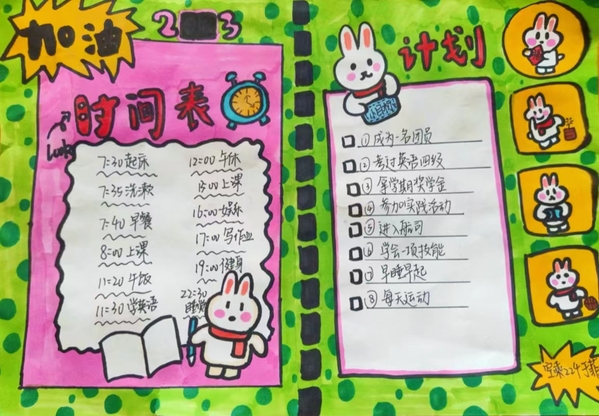 加油
2 3
时间表
look
7:30起床
7:35洗漱
7:40早餐
8:00上课
11:20午饭
11:30学英语
12:00午休
13:00上课
16:00娱乐
17:00写作业
19:00健身
22:30
睡觉
计划
①成为一名团员
②考过英语四级
③拿学期奖学金
④参加实践活动
⑤进入航司
⑥学会一项技能
⑦早睡早起
⑧每天运动
空乘224